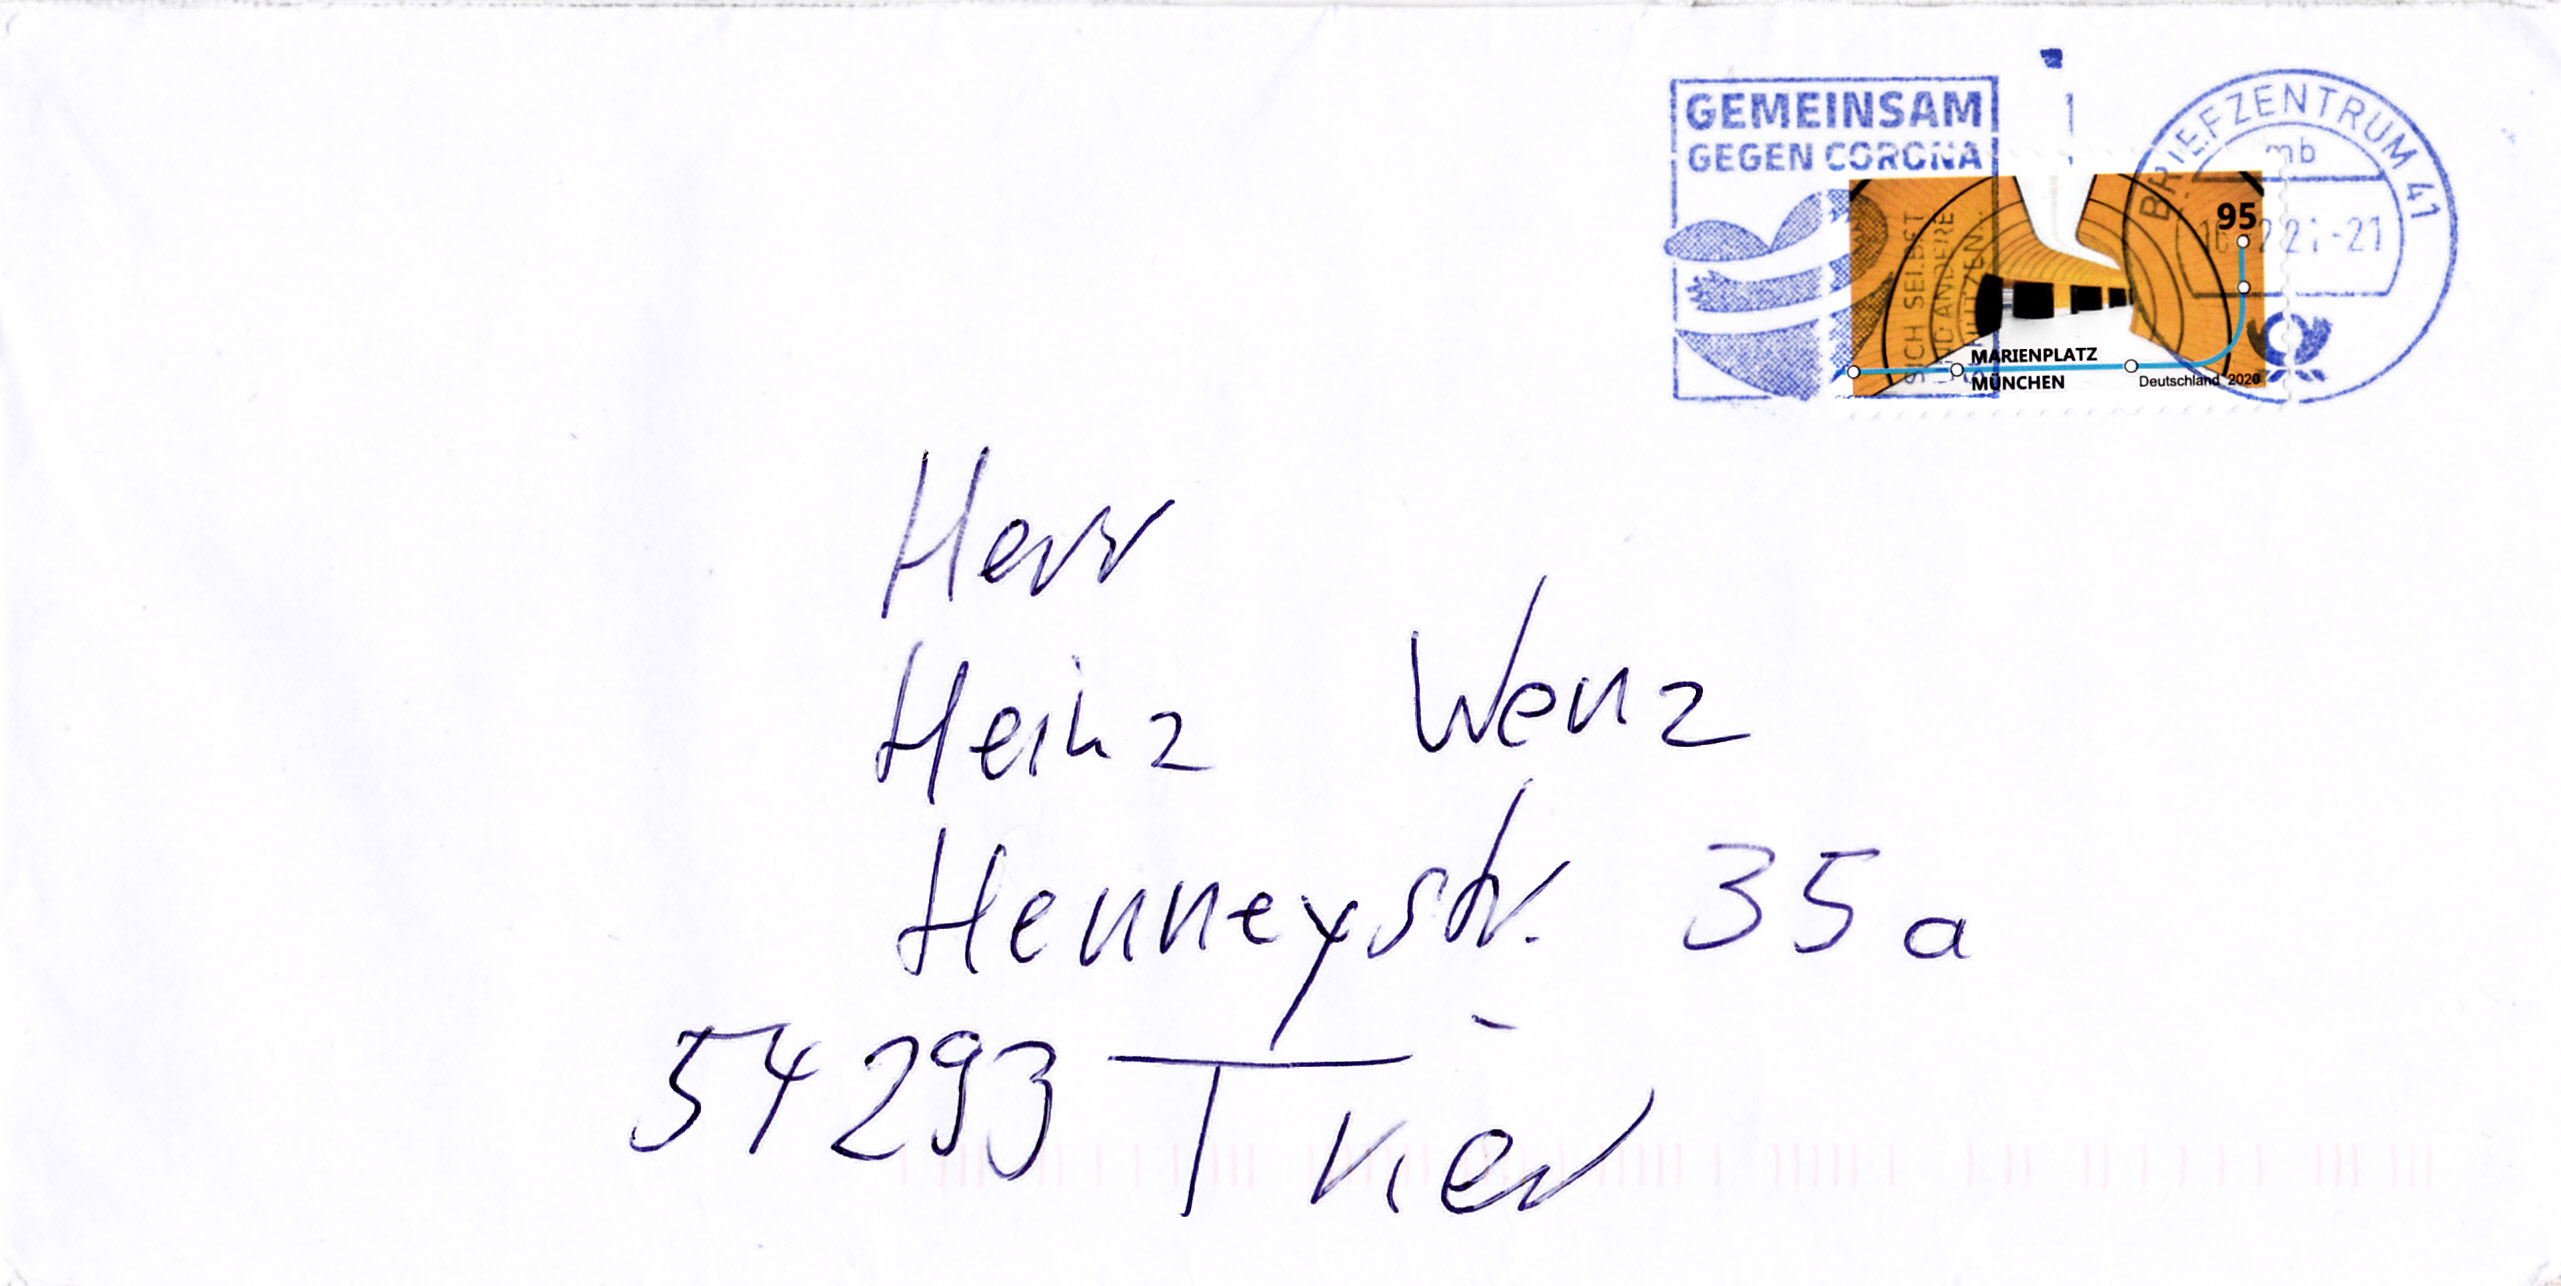 GEMEINSAM
GEGEN CORONA
SICH SELBST
UND ANDERE
SCHÜTZEN
BRIEFZENTRUM 41
mb
-21
95
MARIENPLATZ
MÜNCHEN
Deutschland 2020
Herr
Heinz Wenz
Henneystr. 35a
54293 Trier